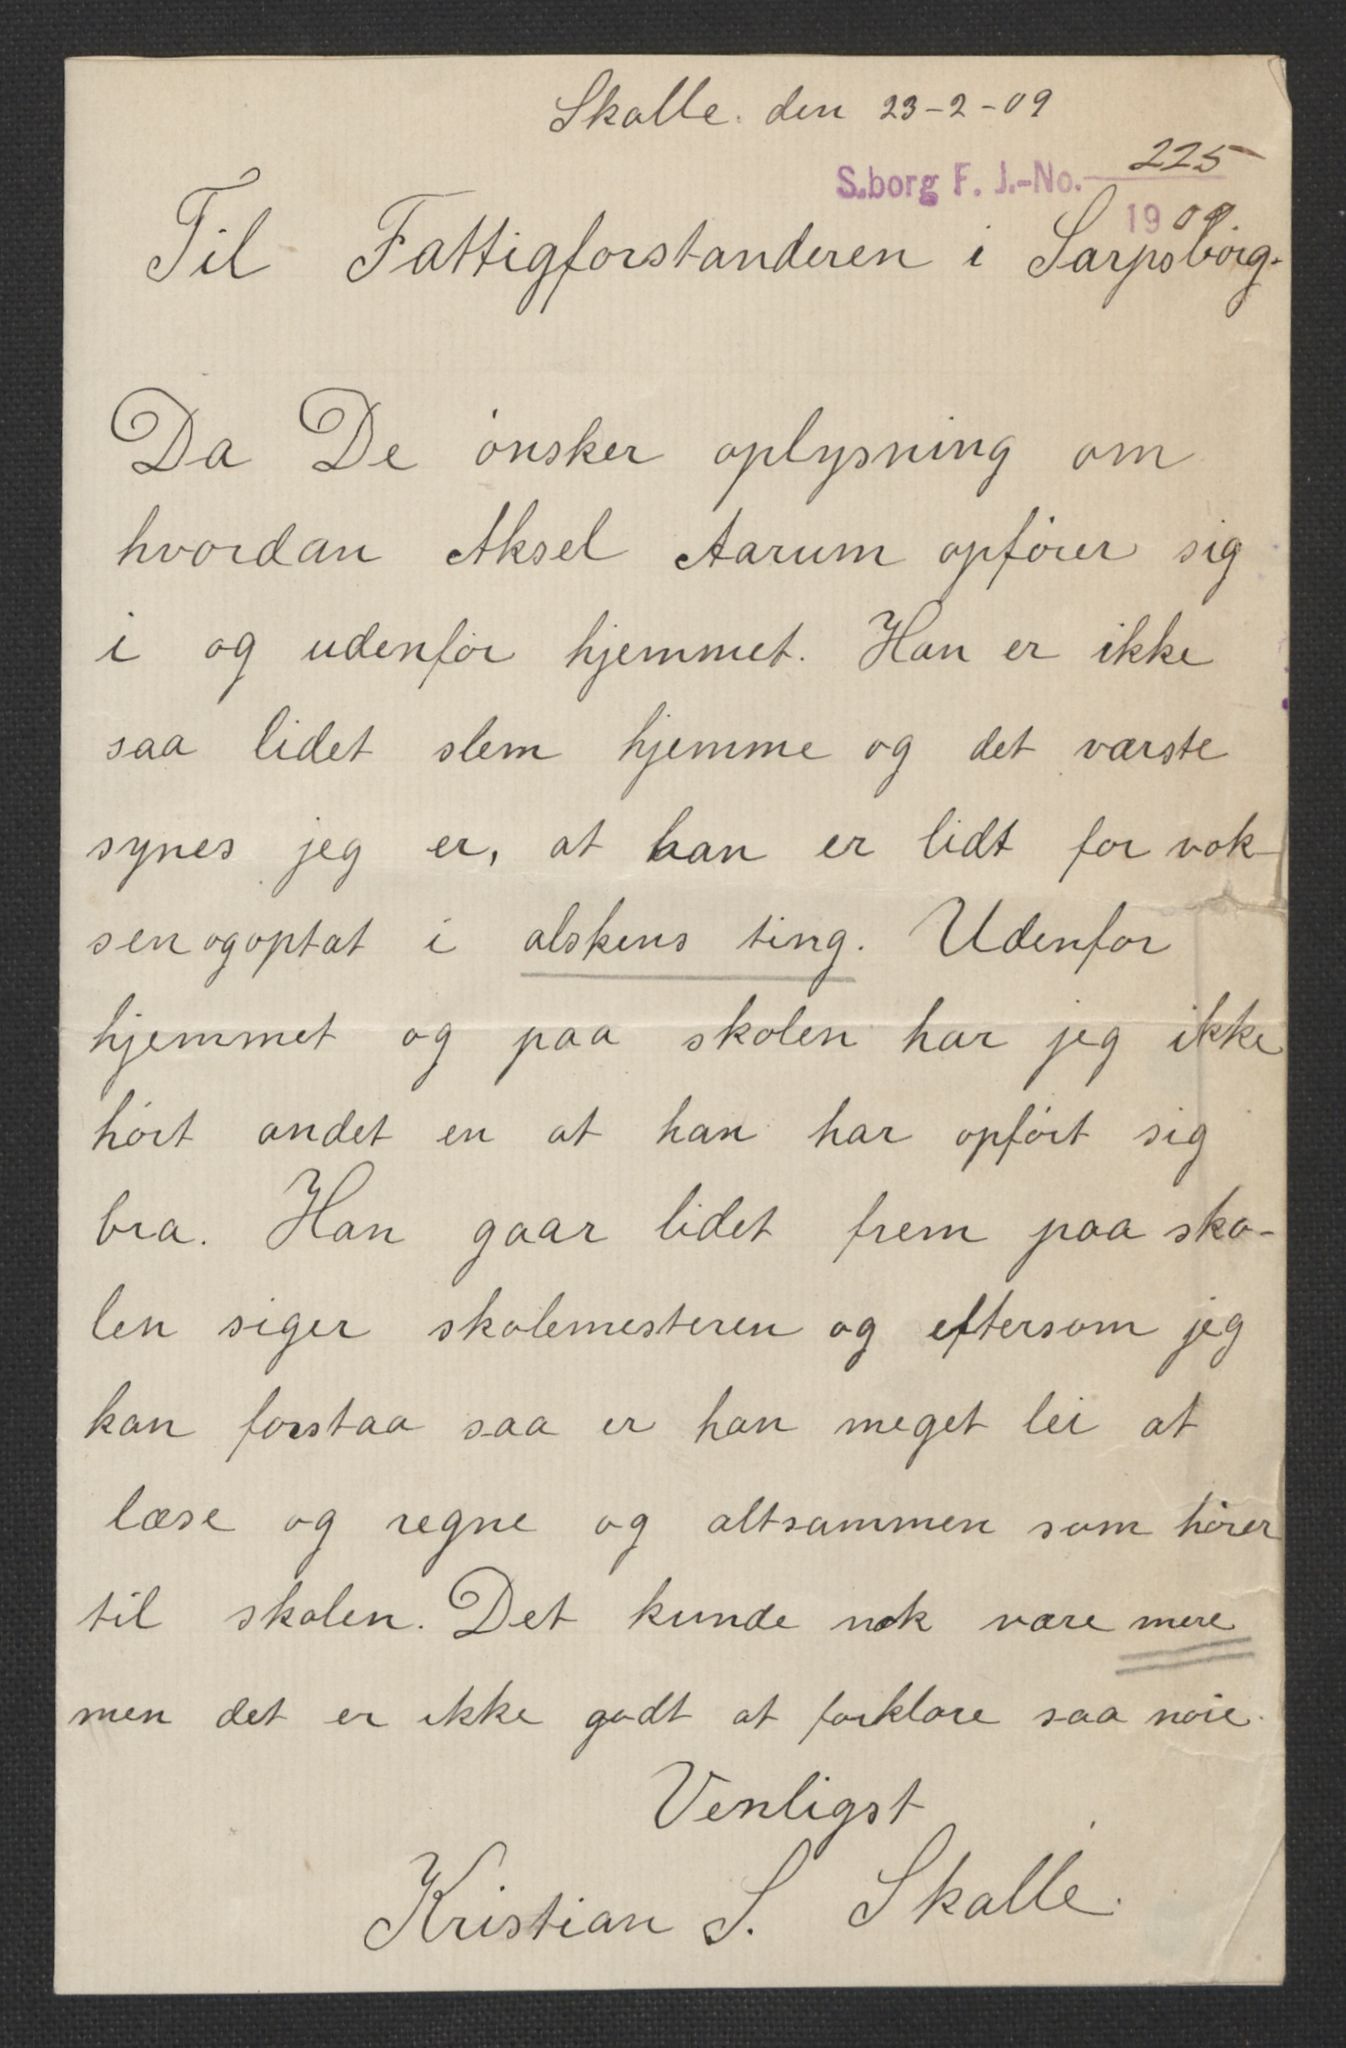 Skalle. den 23-2-09
S.borg F. J.-No. 225
1909
Til Fattigforstanderen i Sarpsborg.
Da De ønsker oplysning om
hvordan Aksel Aarum opfører sig
i og udenfor hjemmet. Han er ikke
saa lidet slem hjemme og det værste
synes jeg er, at han er lidt for vok-
sen og optat i alskens ting. Udenfor
hjemmet og paa skolen har jeg ikke
hørt andet en at han har opført sig
bra. Han gaar lidet frem paa sko-
len siger skolemesteren og eftersom jeg
kan forstaa saa er han meget lei at
læse og regne og altsammen som hører
til skolen. Det kunde nok være mere
men det er ikke godt at forklare saa nøie.
Venligst
Kristian S. Skalle.